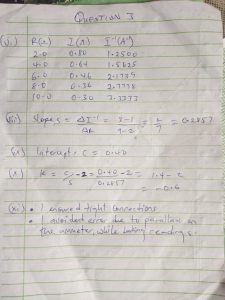 QUESTION 3
(vi) R(Ω) I(A) I⁻¹(A⁻¹)
2.0 0.80 1.2500
4.0 0.64 1.5625
6.0 0.46 2.1739
8.0 0.36 2.7778
10.0 0.30 3.3333
Slope, S = ΔI⁻¹/ΔR = 3-1/9-2 = 2/7 = 0.2857
Intercept, C = 0.40
K = C/S - 2 = 0.40/0.2857 - 2 = 1.4 - 2
= -0.6
(xi) • I ensured tight connections
• I avoided error due to parallax on
the ammeter, while taking readings.